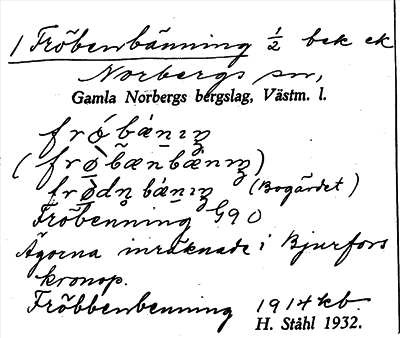 1 Fröbenbänning ½ bek ek
Norbergs sn,
Gamla Norbergs bergslag, Västm. l.
frǿbæ̀nıŋ
(frø̀bæ̃nbæ̀nıŋ)
frø̀dn̥bæ̀nıŋ (Bogärdet)
Fröbenning G90
Ägorna inräknade i Bjurfors
kronop.
Fröbbenbenning 1914 kb
H. Ståhl 1932.